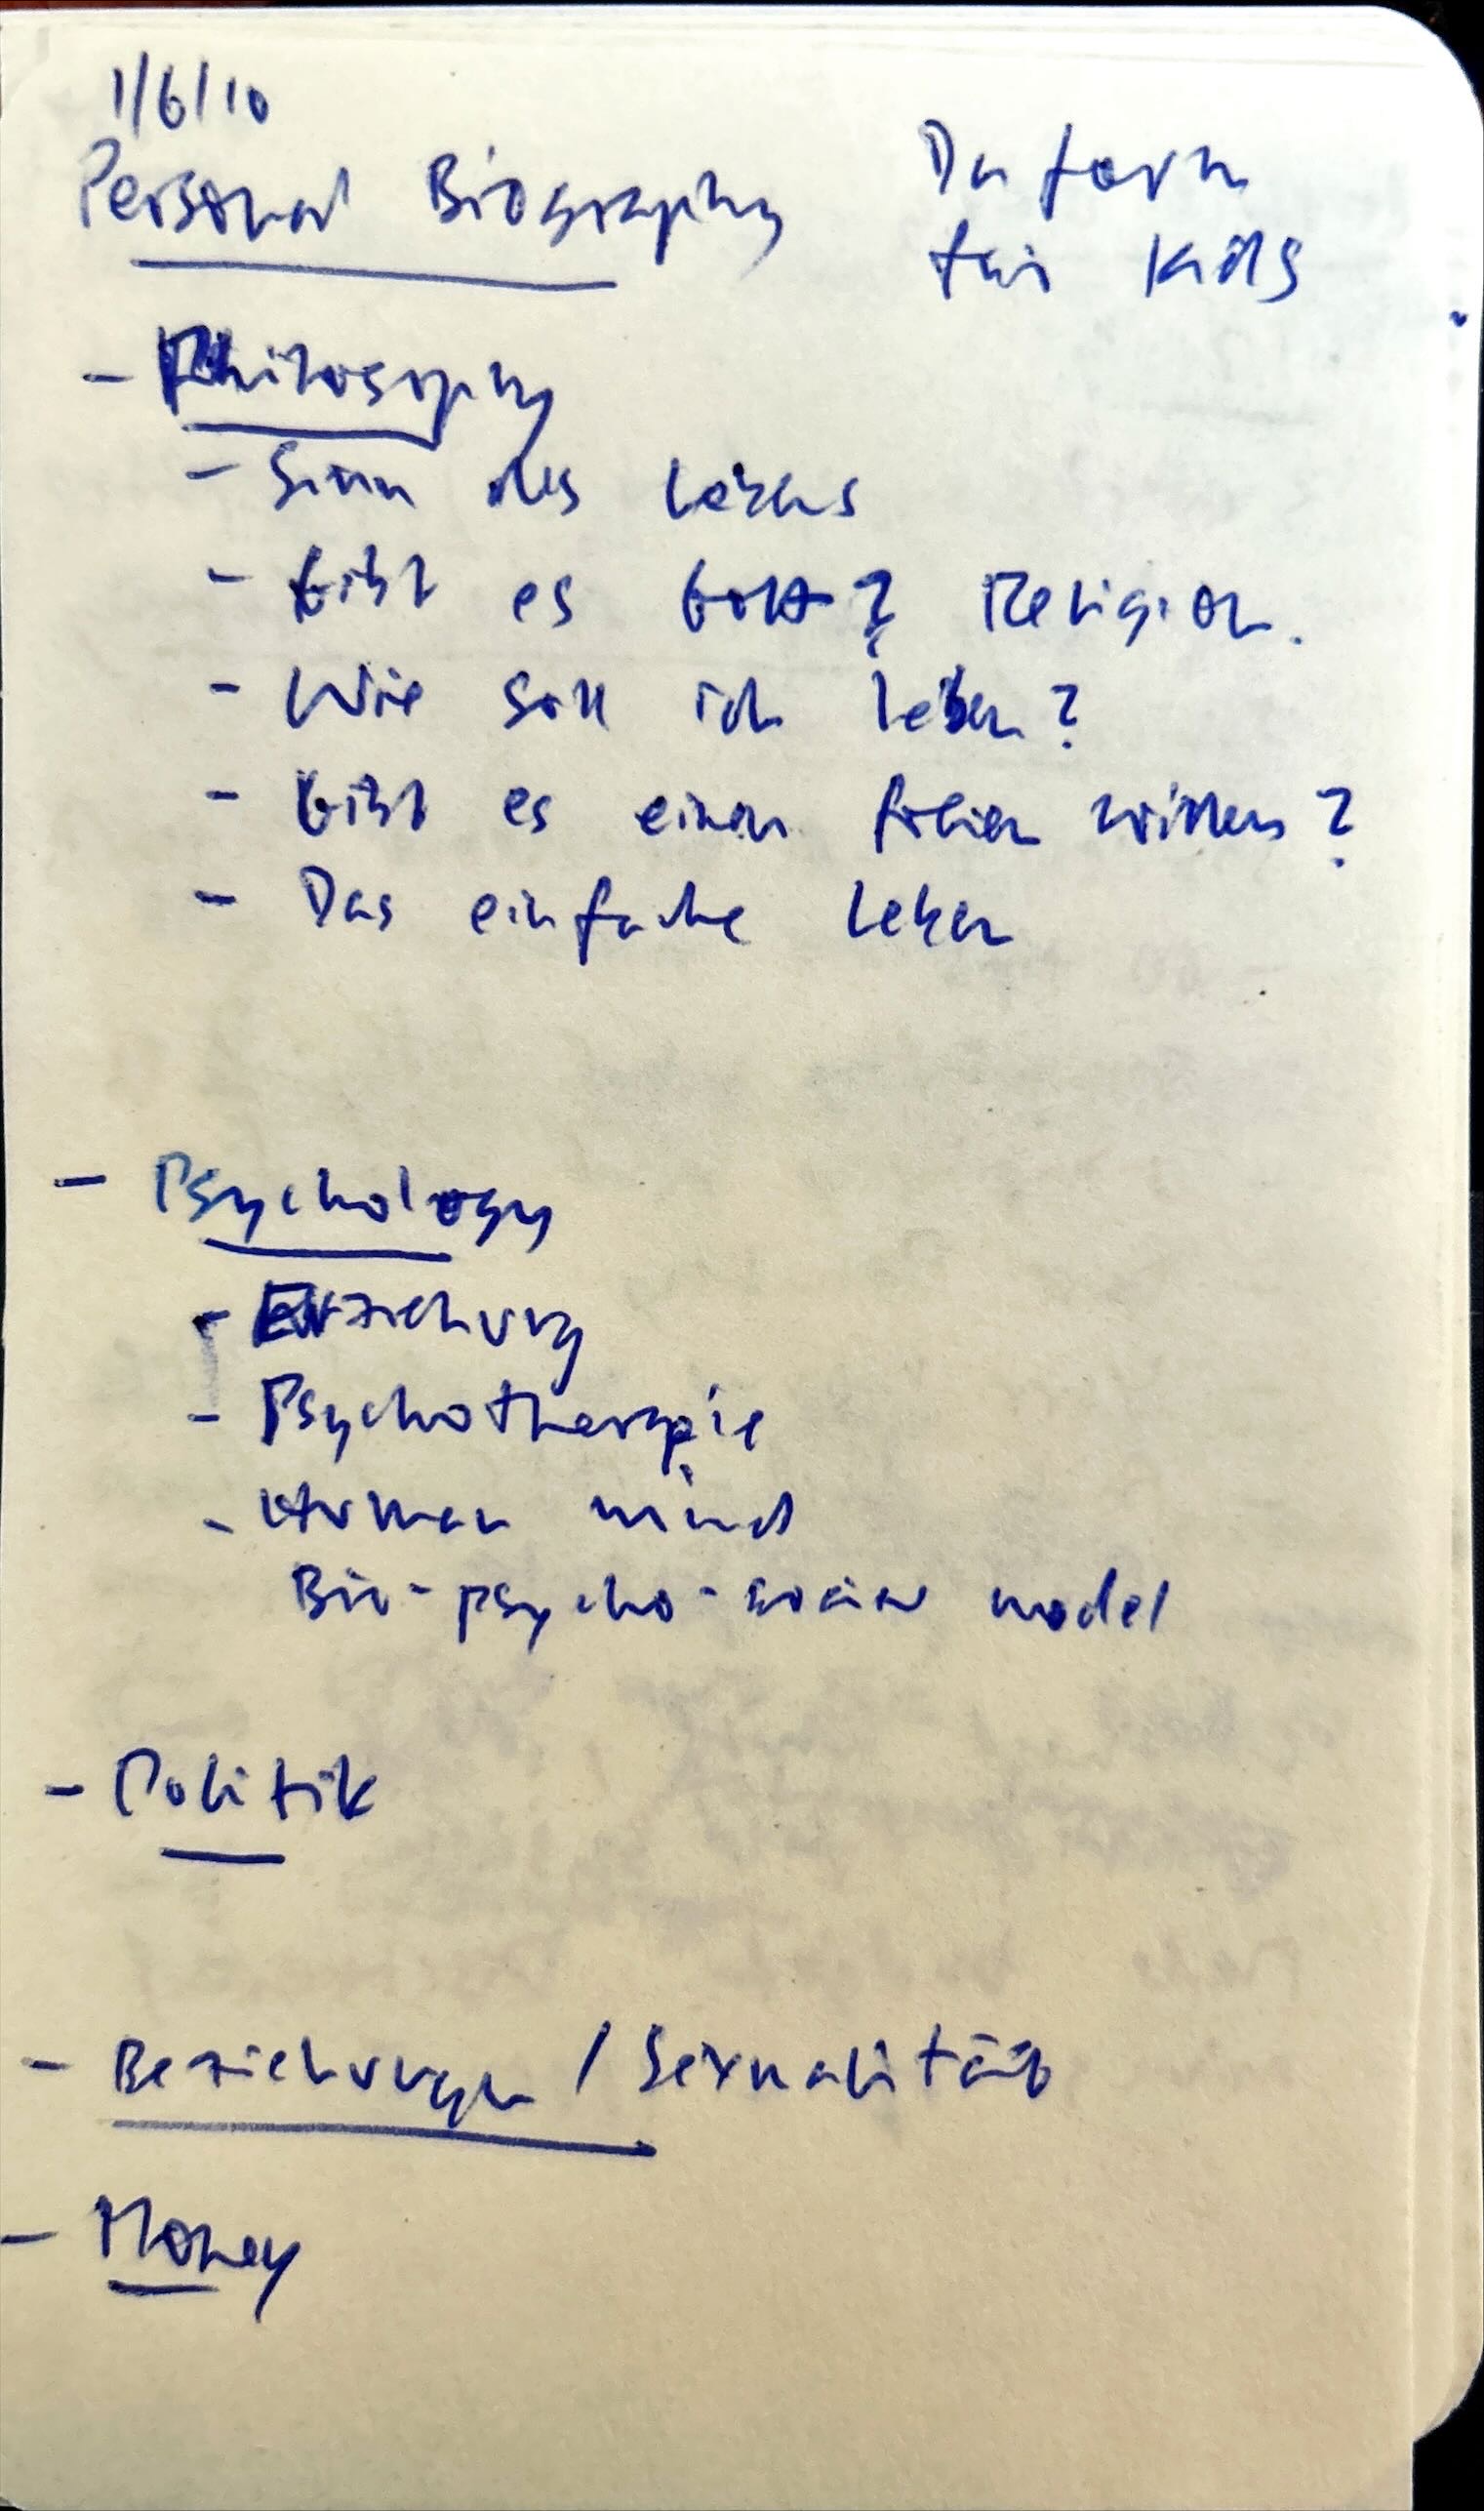 1/6/10
Personal Biography
für Kids
- Philosophy
- Sinn des Lebens
- Gibt es Gott? Religion.
- Wie soll ich leben?
- Gibt es einen freien Willen?
- Das einfache Leben
- Psychology
- Erziehung
- Psychotherapie
- Human mind
Bio-psycho-social model
- Politik
- Beziehungen / Sexualität
- Money